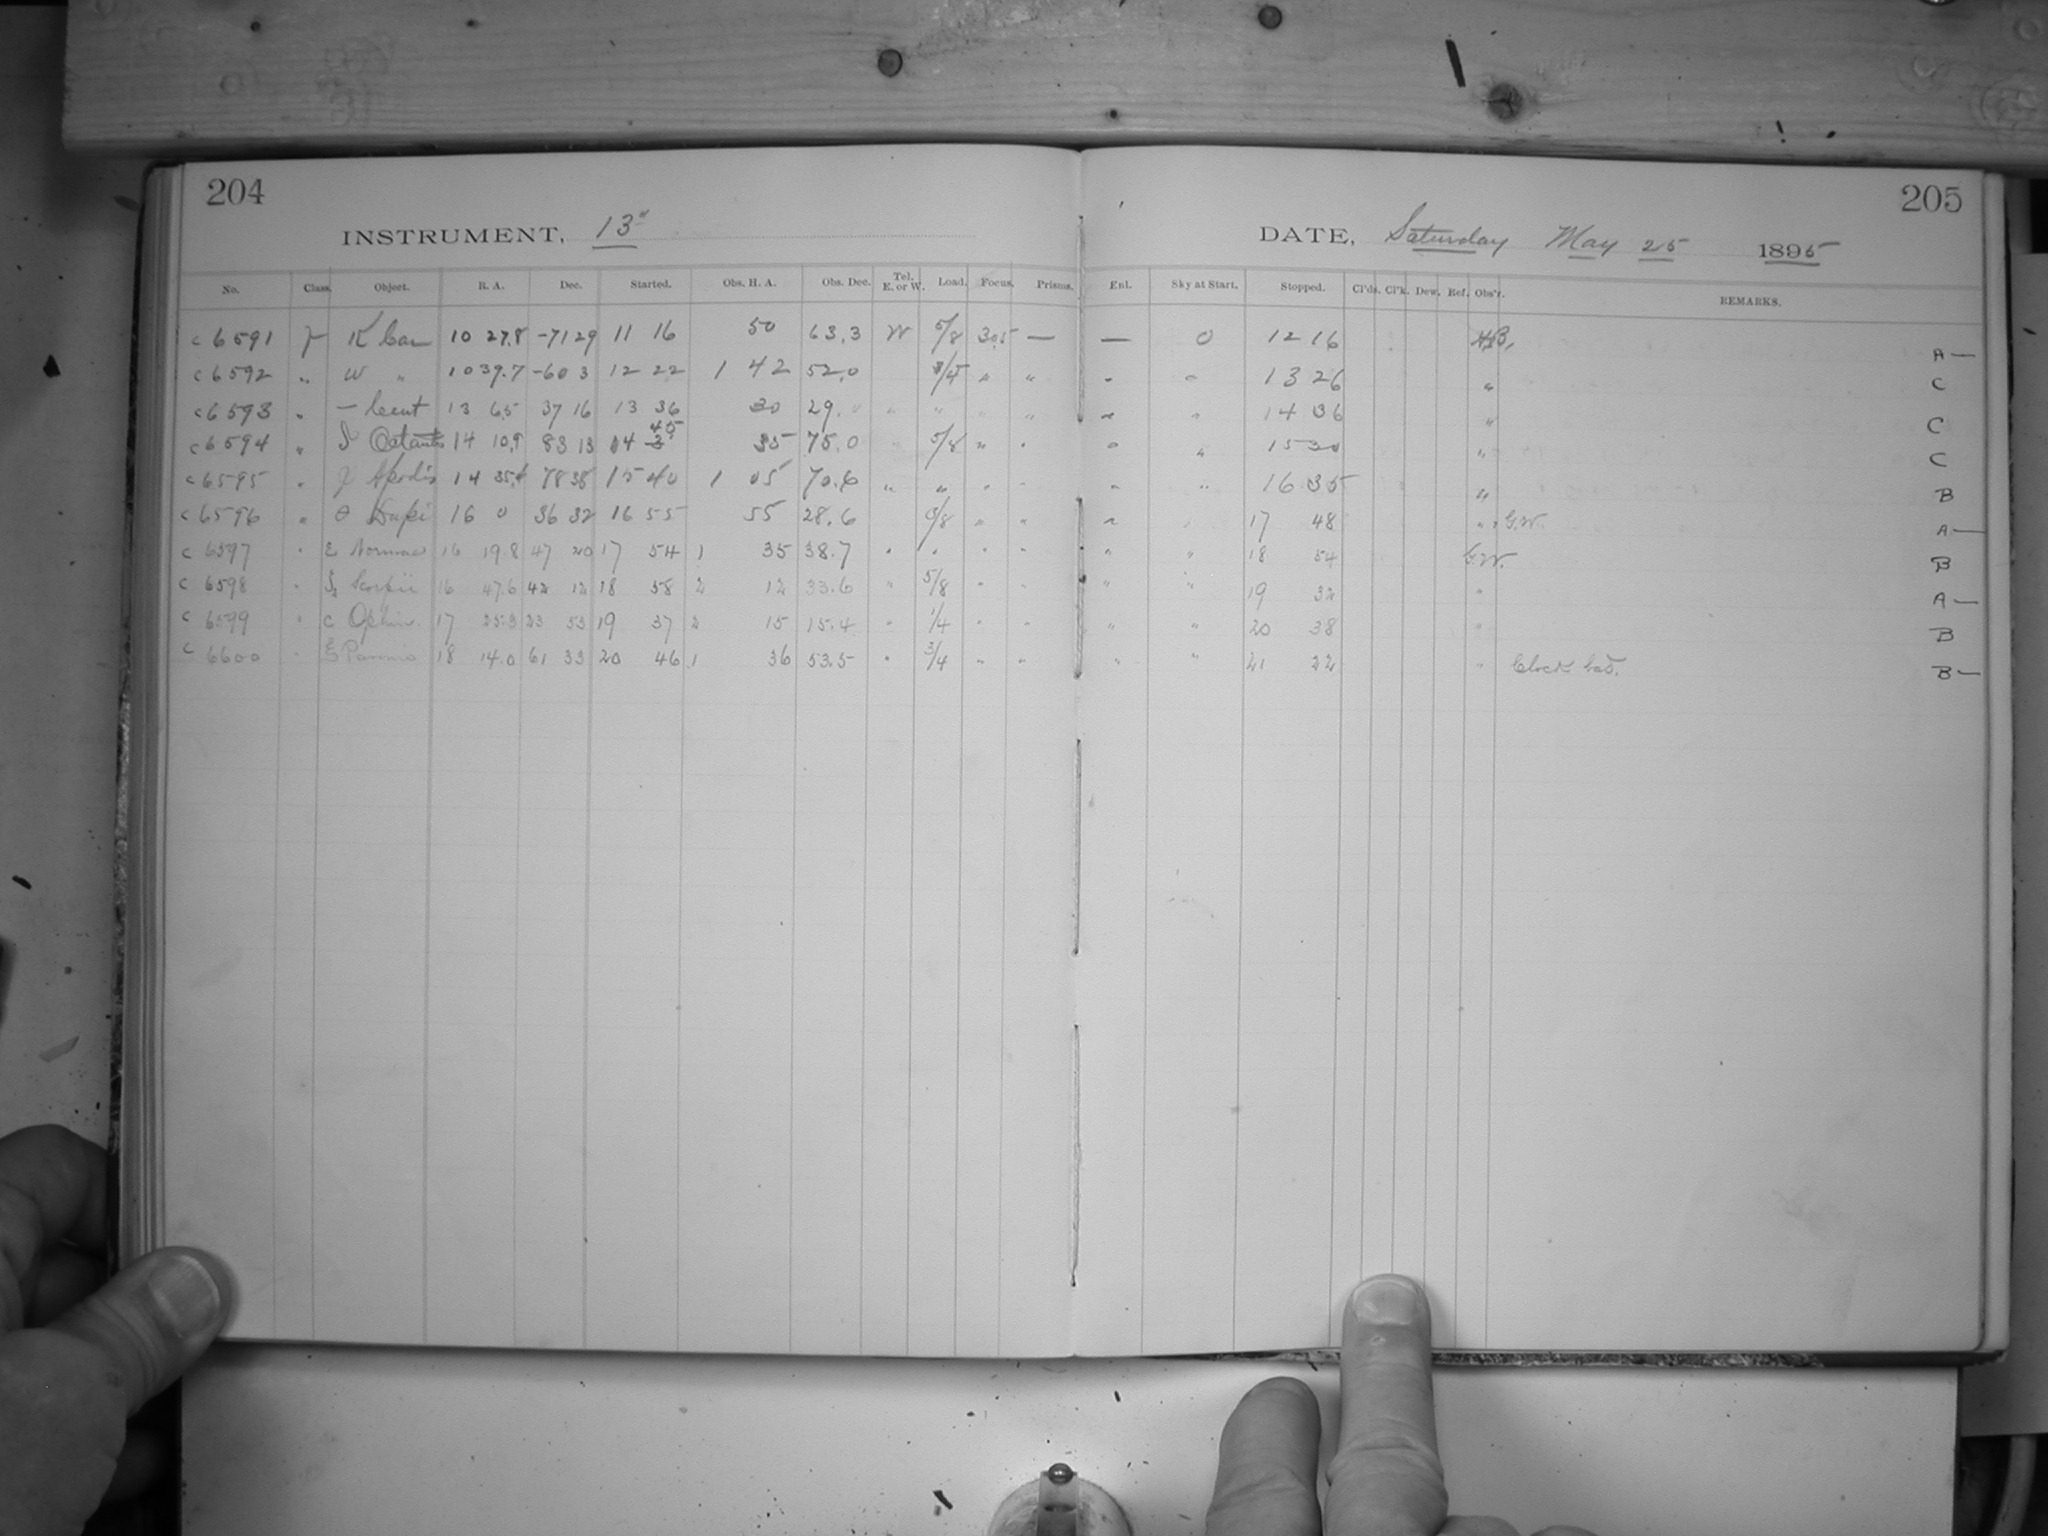 204
205
INSTRUMENT, 13"
DATE, Saturday May 25 1895
No. Class. Object. R. A. Dec. Started. Obs. H. A. Obs. Dec. Tel. E. or W. Load. Focus. Prisms. Enl. Sky at Start. Stopped. Cl'ds. Cl'k. Dew. Ref. Obs'r. REMARKS.
c 6591 K Car 10 27.8 -71 29 11 16 50 63.3 W 5/8 30.5 — — 0 12 16 A—
c 6592 " W " 10 39.7 -60 3 12 22 1 42 52.0 " " " " 13 26 " C
c 6593 " — Cent 13 6.5 37 16 13 36 30 29. " " " " " " 14 36 " C
c 6594 " Octantis 14 10.9 83 13 14 45 35 75.0 5/8 " " " " 15 30 " C
c 6595 " Apodis 14 35. 78 38 15 40 1 05 70.6 " " " " " " 16 35 " B
c 6596 " θ Lupi 16 0 36 32 16 55 55 28.6 " " " " 17 48 " G.W. A—
c 6597 " ε Normae 16 19.8 47 20 17 54 1 35 38.7 " " " " " " 18 54 G.W. B
c 6598 " Scorpii 16 47.6 42 12 18 58 2 12 33.6 " 5/8 " " " " 19 32 " A—
c 6599 " c Ophiu. 17 25.3 23 53 19 37 2 15 15.4 " 1/4 " " " " 20 38 " B
c 6600 " ξ Pavonis 18 14.0 61 33 20 46 1 36 53.5 " 3/4 " " " " 21 22 " Clock bad. B—